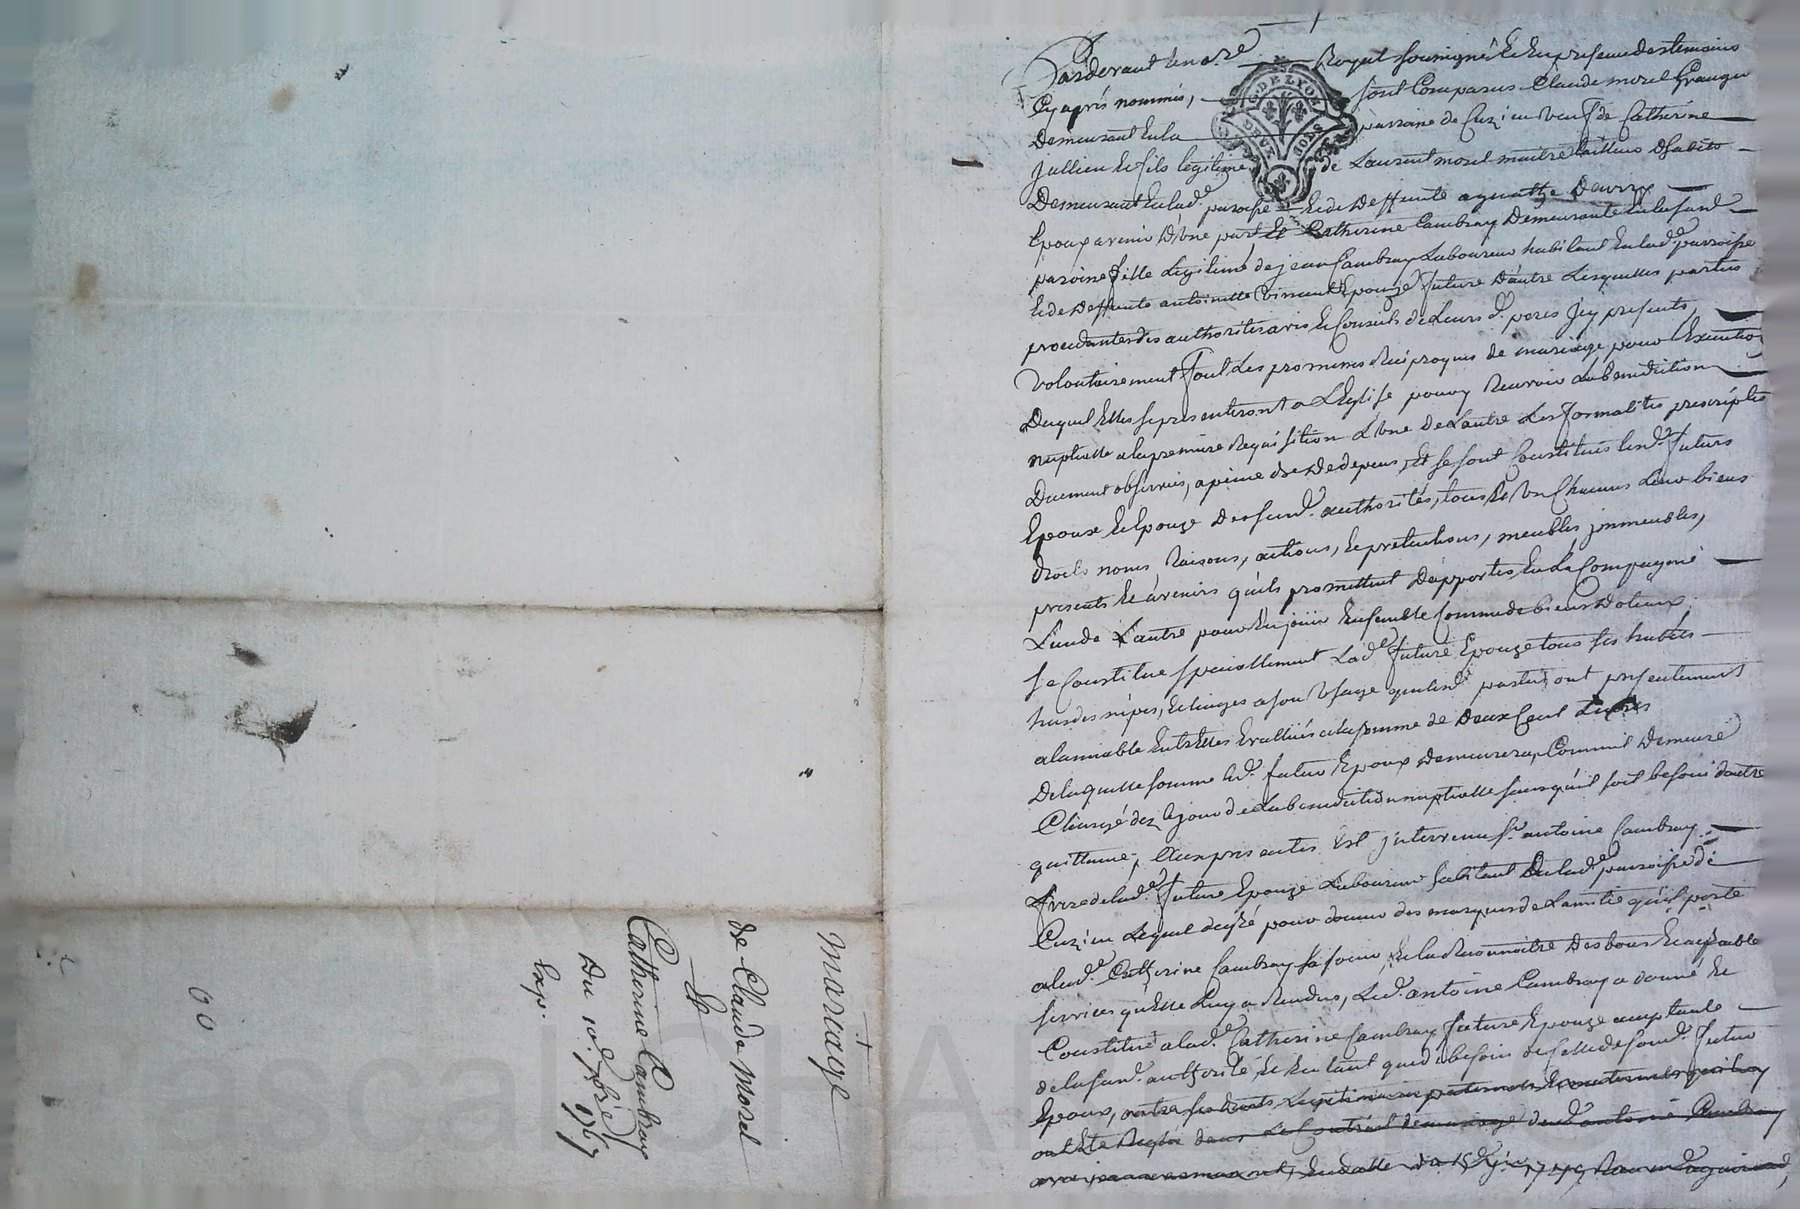 mariage
de Claude morel
Et
Catherine Cambray
Du 10e 9bre 1767
Exp.
Pardevant le no.re Royal soussigné Et En presence des temoins
Cy après nommés, sont Comparus Claude morel Granger
Demeurant En la parroisse de Cuzieu veuf de Catherine
Jullien Et fils legitime de Laurent morel maitre tailleur d'habits
Demeurant En lad.e paroisse Et de Deffunte agathe
Epoux avenir D'Une part Et Catherine Cambray Demeurante En la susd.
paroisse fille Legitime de jean Cambray Laboureur habitant En lad.e parroisse
Et de Deffunte antoinette Vincent Epouze future D'autre Lesquelles parties
procedantes des authorités avis Et Conseils de Leurs d. peres jcy presents,
Volontairement font Les promesses Reciproques de mariage pour L'Execution
Duquel Elles se presenteront a L'Eglise pour y Recevoir La benediction
nuptialle a la premiere Requisition L'Une De L'autre Les formalités prescriptes
Duement observées, a peine de Dedepens, Et se sont Constitués lesd. futurs
Epoux Et Epouze Des susd. authorités, tous Et Un Chacuns Leur biens
droits noms Raisons, actions, Et pretentions, meubles jmmeubles,
presents Et avenirs qu'ils promettent D'apporter En La Compagnie
L'un de L'autre pour En jouir Ensemble Comme de biens Doteaux,
Se Constitue specialement Lad.e future Epouze tous ses habits
hardes nipes, Et linges a son Usage que lesd. parties ont presentement
a lamiable Entr'Elles Evallués a la somme de Deux Cent Livres
De laquelle somme led. futur Epoux Demeurera Comme il Demeure
Chargé dez le jour de La benediction nuptialle sans qu'il soit besoin d'autre
quittance; Aux presentes Est jntervenu sr. antoine Cambray
frere de lad.e future Epouze Laboureur habitant En lad.e parroisse de
Cuzieu Lequel desiré pour donner des marques de L'amitié qu'il porte
a lad.e Catherine Cambray sa soeur, Et la Reconnoitre Des bons Et agreable
services qu'Elle Luy a Rendus, Led. antoine Cambray a donné Et
Constitué a lad.e Catherine Cambray future Epouze acceptante
de la susd. authorité, Et En tant que de besoin de celle de sond. futur
Epoux, outre ses droits Legitimaires paternels Et maternels qui luy
ont Eté Reglés dans Le Contrat de mariage dud. antoine Cambray